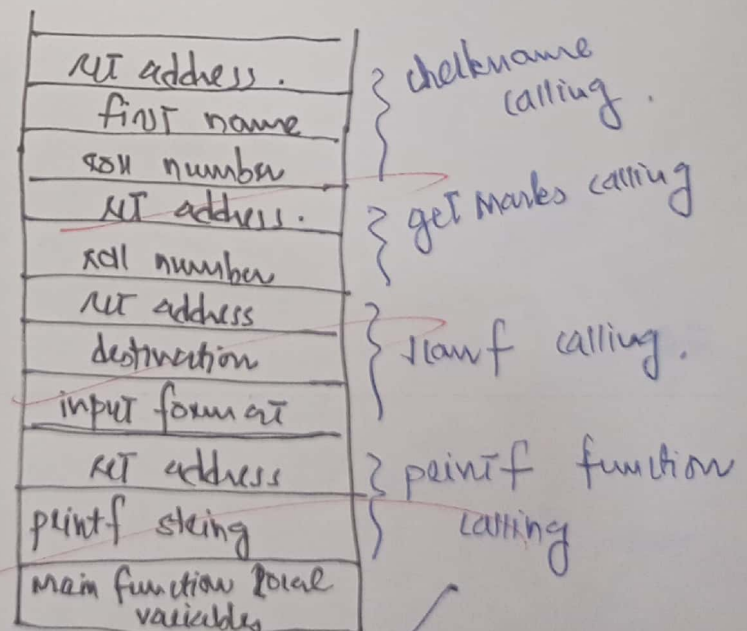 ret address.
first name
roll number
ret address.
roll number
ret address
destination
input format
ret address
printf string
main function local
variables
checkname
calling.
get marks calling
scanf calling.
printf function
calling